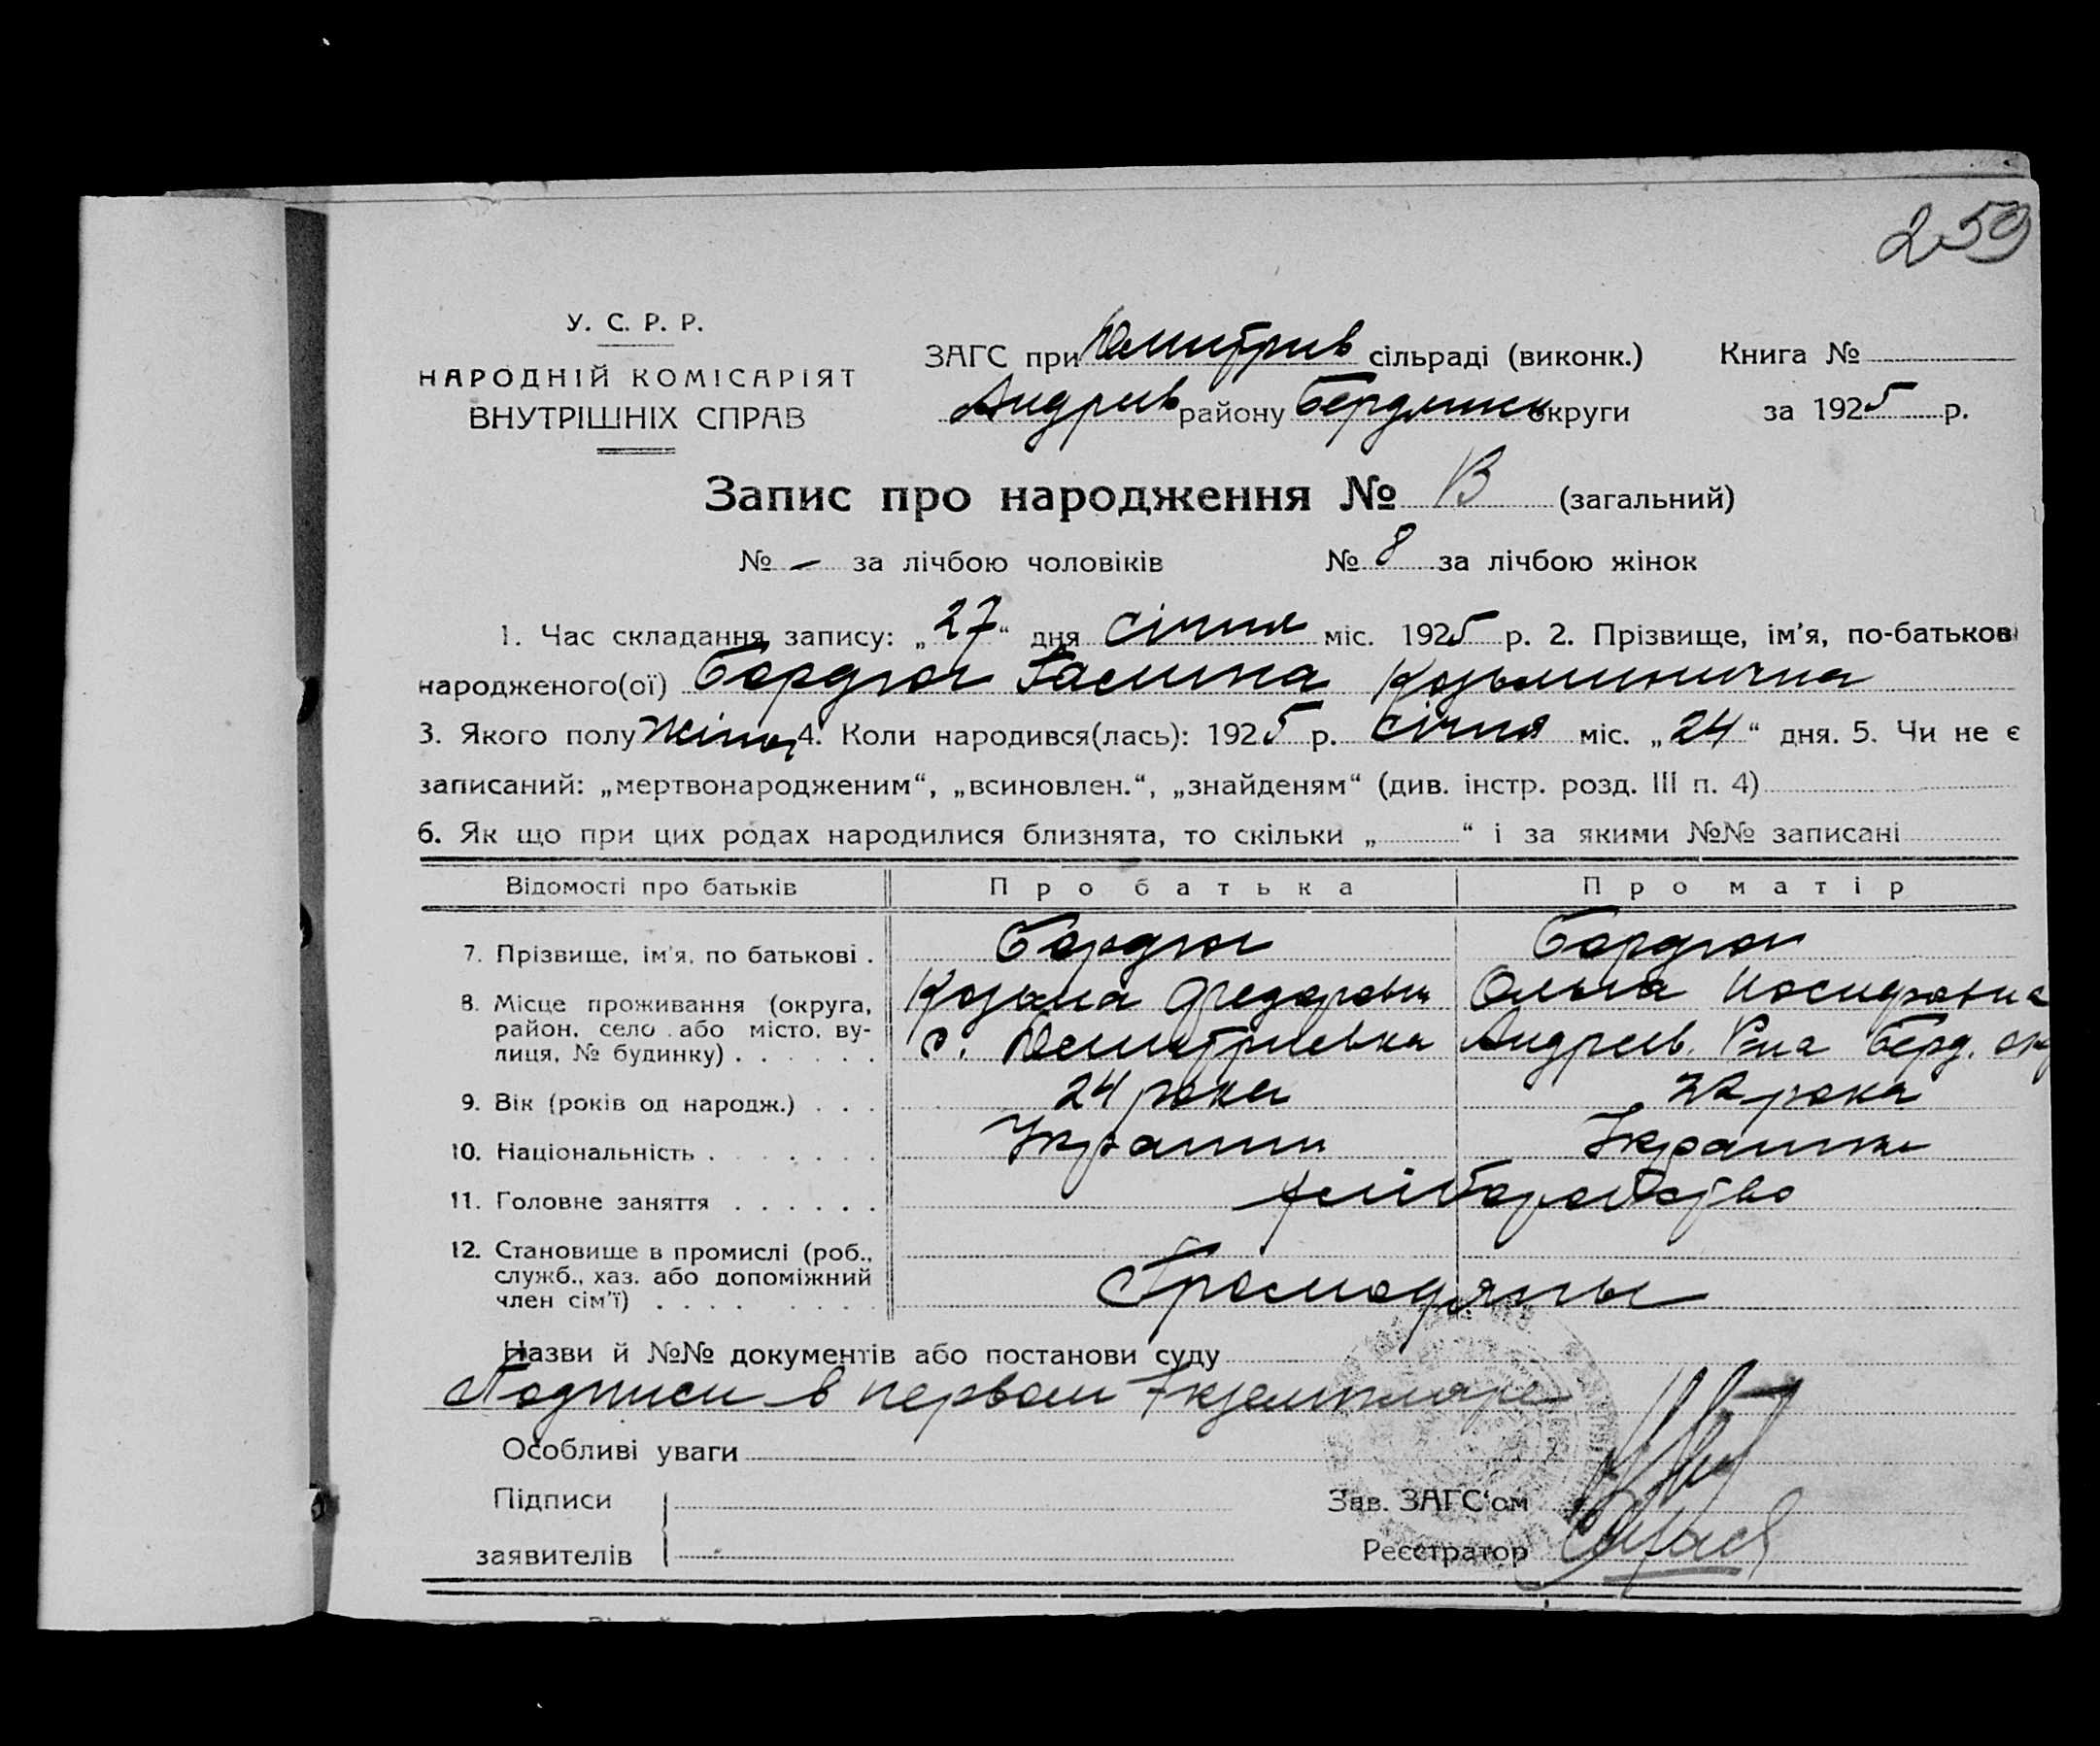 259
У. С. Р. Р.
НАРОДНІЙ КОМІСАРІЯТ
ВНУТРІШНІХ СПРАВ
ЗАГС при Дмитрив сільраді (виконк.) Книга №
Андріив району Бердянськ округи за 1925 р.
Запис про народження № 13 (загальний)
№ – за лічбою чоловіків № 8 за лічбою жінок
1. Час складання запису: „27“ дня січня міс. 1925 р. 2. Прізвище, ім’я, по-батькові
народженого(ої) Бордюг Галина Козьминична
3. Якого полу жіноч 4. Коли народився(лась): 1925 р. січня міс. „24“ дня. 5. Чи не є
записаний: „мертвонародженим“, „всиновлен.“, „знайденям“ (див. інстр. розд. III п. 4)
6. Як що при цих родах народилися близнята, то скільки „ “ і за якими №№ записані
Відомості про батьків Про батька Про матір
7. Прізвище, ім’я, по батькові . Бордюг Бордюг
Козьма Федорович Ольга Иосифовна
8. Місце проживання (округа, район, село або місто, ву-
лиця, № будинку) . . . . . . с. Дмитриевка Андреев. Р-на Берд. ок
9. Вік (років од народж.) . . . 24 роки 22 роки
10. Національність . . . . . . . Украинц Украинк
11. Головне заняття . . . . . . хліборобство
12. Становище в промислі (роб.,
служб., хаз. або допоміжний
член сім’ї) . . . . . . . . Громодяны
Назви й №№ документів або постанови суду
Подписи в первом экземпляре
Особливі уваги
Підписи
заявителів
Зав. ЗАГС‘ом
Реєстратор